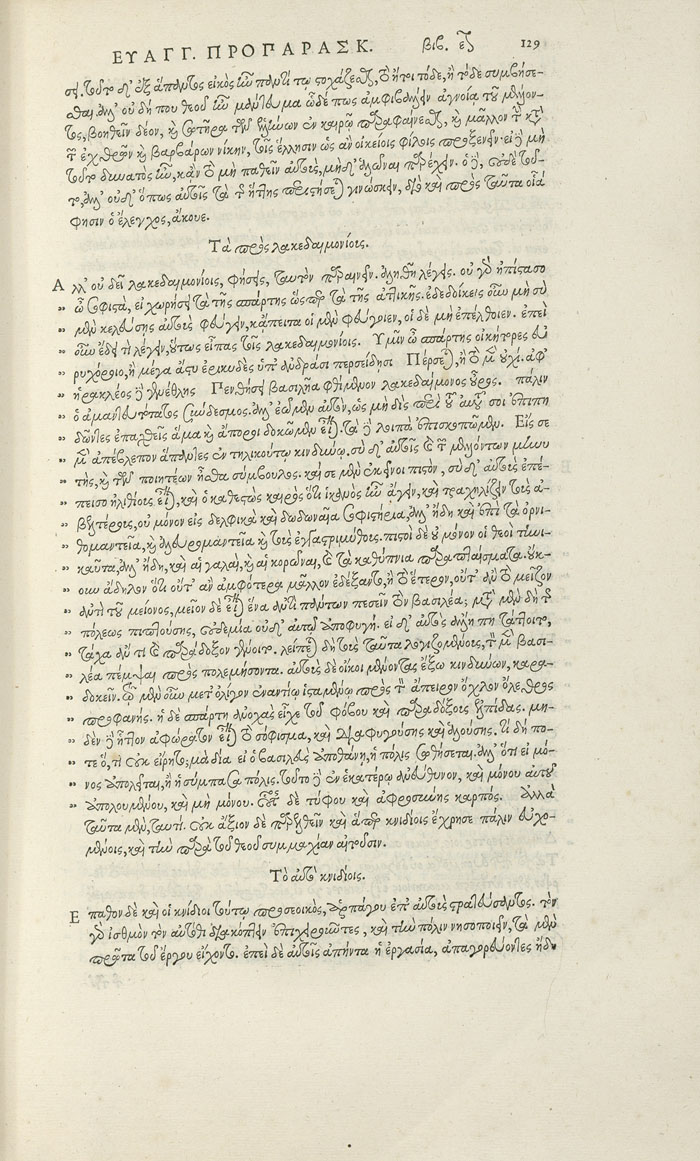 ΕΥΑΓΓ. ΠΡΟΠΑΡΑΣΚ. βιβ. εζ 129
στ. τοῦτο δ' ἐξ ἅπαντος εἰκὸς ἦν παντί τῳ στοχάζεσθαι, τὸ ἤτοι τόδε, ἢ τόδε συμβήσε-
σθαι. ἀλλ' οὐ δή που θεοῦ ἦν μάντευμα ὧδέ πως ἀμφιβάλλειν ἀγνοίᾳ τοῦ μέλλον-
τος, βοηθεῖν δέον, καὶ σωτῆρα τῶν ἐν καιρῷ παραφαίνεσθαι, καὶ μᾶλλον τὴν κατὰ
τῶν ἐχθρῶν καὶ βαρβάρων νίκην, τοῖς ἕλλησιν ὡς ἂν οἰκείοις φίλοις προξενεῖν. εἰ δὲ μὴ
τοῦτο δυνατὸς ἦν, κἂν τὸ μὴ παθεῖν αὐτοὺς, παρέχειν. ὁ δὲ, οὐδὲ τοῦ-
το, ἀλλ' οὐδ' ὅπως αὐτοῖς τὰ τῆς ἥττης περιστήσεται γινώσκειν, διὸ καὶ πρὸς ταῦτα οἷά
φησιν ὁ ἔλεγχος, ἄκουε.
Τὰ πρὸς λακεδαιμονίοις.
Αλλ' οὐ δεῖ λακεδαιμονίοις, φήσεις, ταυτὸν παραινεῖν. ἀληθῆ λέγεις. οὐ γὰρ ἠπίστασο
ὦ σοφιστὰ, εἰ χωρήσει τὰ τῆς σπάρτης ὥσπερ τὰ τῆς ἀττικῆς. ἐδεδοίκεις οὖν μὴ σὺ
μὲν κελεύσῃς αὐτοῖς φεύγειν, κἄπειτα οἱ μὲν φεύγοιεν, οἱ δὲ μὴ ἐπέλθοιεν. ἐπεὶ
οὖν ἔδει τι λέγειν, οὕτως εἶπας τοῖς λακεδαιμονίοις. Υμῖν ὦ σπάρτης οἰκήτορες εὐ
ρυχόροιο, ἢ μέγα ἄστυ ἐρικυδὲς ὑπ' ἀνδράσι περσείδησι Πέρσεται, ἢ τὸ μὲν οὐχὶ. ἀφ'
ἡρακλέος δὲ γενέθλης Πενθήσει βασιλῆα φθίμενον λακεδαίμονος οὖρος. πάλιν
ὁ ἀμαντευτότατος σύνδεσμος. ἀλλ' ἐῶμεν αὐτὸν, ὡς μὴ δὶς περὶ τοῦ αὐτοῦ σοι ἐπιπη
δῶντες ἐπαχθεῖς ἅμα καὶ ἄποροι δοκῶμεν εἶναι. τὰ δὲ λοιπὰ ἐπισκοπῶμεν. Εἴς σε
μὲν ἀπέβλεπον ἅπαντες ἐν τηλικούτῳ κινδύνῳ. σὺ δ' αὐτοῖς καὶ τῶν μελλόντων μηνυ
τὴς, καὶ τῶν ποιητέων ἦσθα σύμβουλος. καί σε μὲν ἐκεῖνοι πιστὸν, σὺ δ' αὐτοὺς ἐπέ-
πεισο ἠλιθίους εἶναι, καὶ ὁ καθεστὼς καιρὸς ὅτι ἱκανὸς ἦν ἄγειν, καὶ τραχηλίζειν τοὺς ἀ-
βελτέρους, οὐ μόνον εἰς δελφικὰ καὶ δωδωναῖα σοφιστήρια, ἀλλ' ἤδη καὶ ἐπὶ τὰ ὀρνι-
θομαντεῖα, καὶ ἀλευρομαντεῖα καὶ τοὺς ἐγγαστριμύθους. πιστοὶ δὲ οὐ μόνον οἱ θεοὶ τηνι-
καῦτα, ἀλλ' ἤδη, καὶ αἱ γαλαῖ, καὶ αἱ κορῶναι, καὶ τὰ καθύπνια παραπλαίσματα. οὐκ-
ουν ἄδηλον ὅτι οὔτ' ἂν ἀμφότερα μᾶλλον ἐδέξαντο, ἢ τὸ ἕτερον, οὔτ' ἂν τὸ μεῖζον
ἀντὶ τοῦ μείονος, μεῖον δὲ εἶναι ἕνα ἀντὶ πάντων πεσεῖν τὸν βασιλέα; μετὰ μὲν δὴ τῆς
πόλεως πιπτούσης, οὐδεμία οὐδ' αὐτῷ ἀποφυγή. εἰ δ' αὐτὸς ἄλλῃ πη τάττοιτο,
τάχα ἄν τι καὶ παράδοξον γένοιτο. λείπεται δὴ τοῖς ταῦτα λογιζομένοις, τὸν μὲν βασι-
λέα πέμψαι πρὸς πολεμήσοντα. αὐτοὺς δὲ οἴκοι μένοντας ἔξω κινδύνων, καρα-
δοκεῖν. τῷ μὲν οὖν μετ' ὀλίγων ἐναντίῳ ἱσταμένῳ πρὸς τὸν ἄπειρον ὄχλον ὄλεθρος
προφανής. ἡ δὲ σπάρτη ἀνοχὰς εἶχε τοῦ φόβου καὶ παραδόξους ἐλπίδας. μη-
δὲν δὲ ἧττον ἀφωρᾶτον εἶναι τὸ σόφισμα, καὶ διαφυγούσης καὶ ἁλούσης. τί δή πο-
τε ὅ, τι οὐκ εἴρητο; μὰ δία εἰ ὁ βασιλεὺς ἀποθάνῃ, ἡ πόλις σωθήσεται. ἀλλ' ὅτι εἰ μό-
νος ἀπολεῖται, ἢ ἡ σύμπασα πόλις. τοῦτο δὲ ἐν ἑκατέρῳ ἀνεύθυνον, καὶ μόνου αὐτοῦ
ἀπολουμένου, καὶ μὴ μόνου. οὗτος δὲ τύφου καὶ ἀφροσύνης καρπός. Αλλὰ
ταῦτα μὲν, ταυτί. οὐκ ἄξιον δὲ παρελθεῖν καὶ ἅπερ κνιδίοις ἔχρησε πάλιν εὐχο-
μένοις, καὶ τὴν παρὰ τοῦ θεοῦ συμμαχίαν αἰτοῦσιν.
Τὸ αὐτὸ κνιδίοις.
Επαθον δὲ καὶ οἱ κνίδιοι τούτῳ προσεοικὸς, ἁρπάγου ἐπ' αὐτοὺς στρατεύσαντος. τὸν
γὰρ ἰσθμὸν τὸν αὐτόθι διακόπτειν ἐπιχειροῦντες, καὶ τὴν πόλιν νησοποιεῖν, τὰ μὲν
πρῶτα τοῦ ἔργου εἴχοντο. ἐπεὶ δὲ αὐτοῖς ἀπήντα ἡ ἐργασία, ἀπαγορεύοντες ἤδη